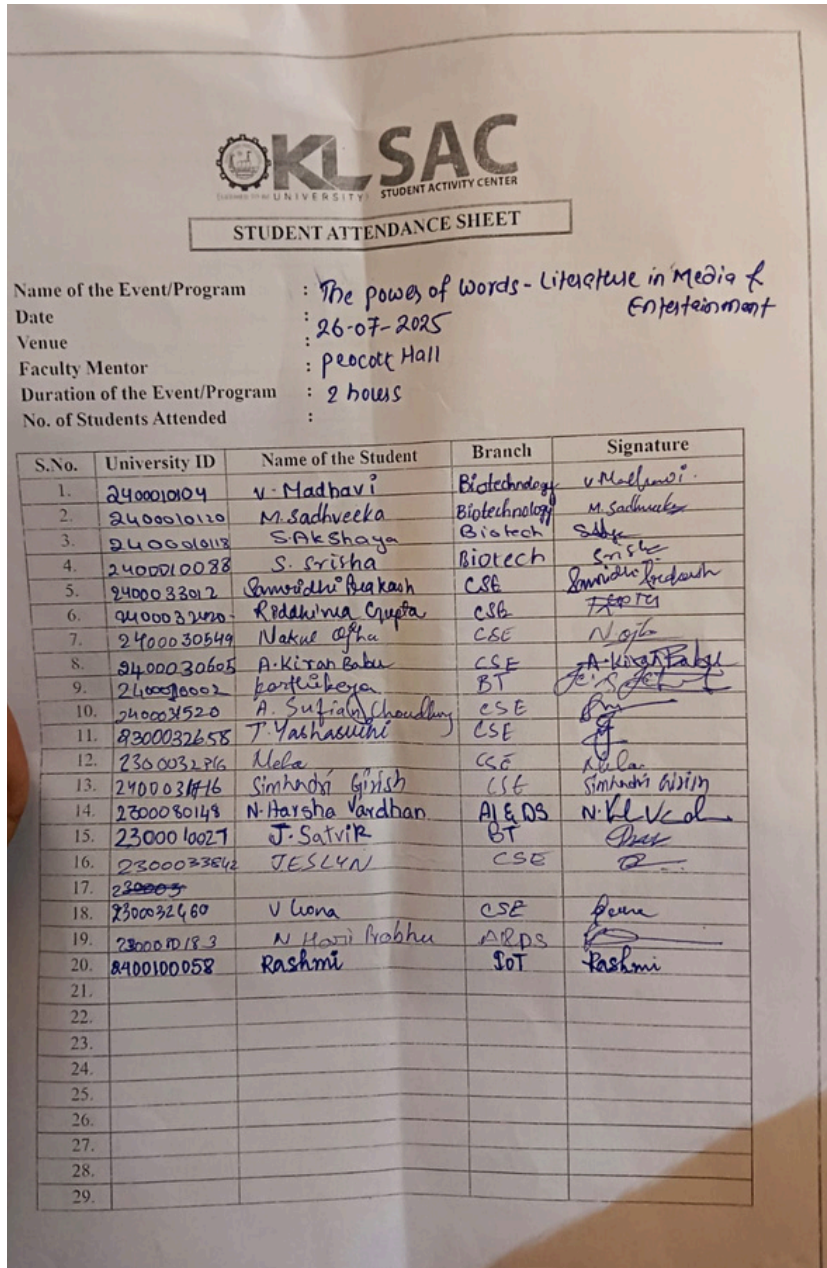 KL SAC
UNIVERSITY STUDENT ACTIVITY CENTER
STUDENT ATTENDANCE SHEET
Name of the Event/Program : The power of Words - Literature in Media &
Entertainment
Date : 26-07-2025
Venue : peocott Hall
Faculty Mentor :
Duration of the Event/Program : 2 hours
No. of Students Attended :
S.No. University ID Name of the Student Branch Signature
1. 2400010104 V. Madhavi Biotechnology V Madhavi.
2. 2400010120 M. Sadhveeka Biotechnology M. Sadhveeka
3. 2400010118 S. Akshaya Biotech
4. 2400010088 S. Srisha Biotech Srisha
5. 2400033012 Samridhi Prakash CSE Samridhi Prakash
6. Riddhima Gupta CSE
7. 2400030549 Nakul CSE
8. 2400030605 A. Kiran Babu CSE A. Kiran Babu
9. karthikeya BT
10. 2400031520 A. Sufian Choudhury CSE
11. 2300032658 T. Yashaswini CSE
12. Neha CSE
13. Simhadri Girish CSE Simhadri Girish
14. 2300080148 N. Harsha Vardhan AI & DS
15. 2300010027 J. Satvik BT
16. 2300033842 JESLYN CSE
17.
18. 2300032460 V CSE
19. N Hari Prabhu
20. 2400100058 Rashmi IoT Rashmi
21.
22.
23.
24.
25.
26.
27.
28.
29.